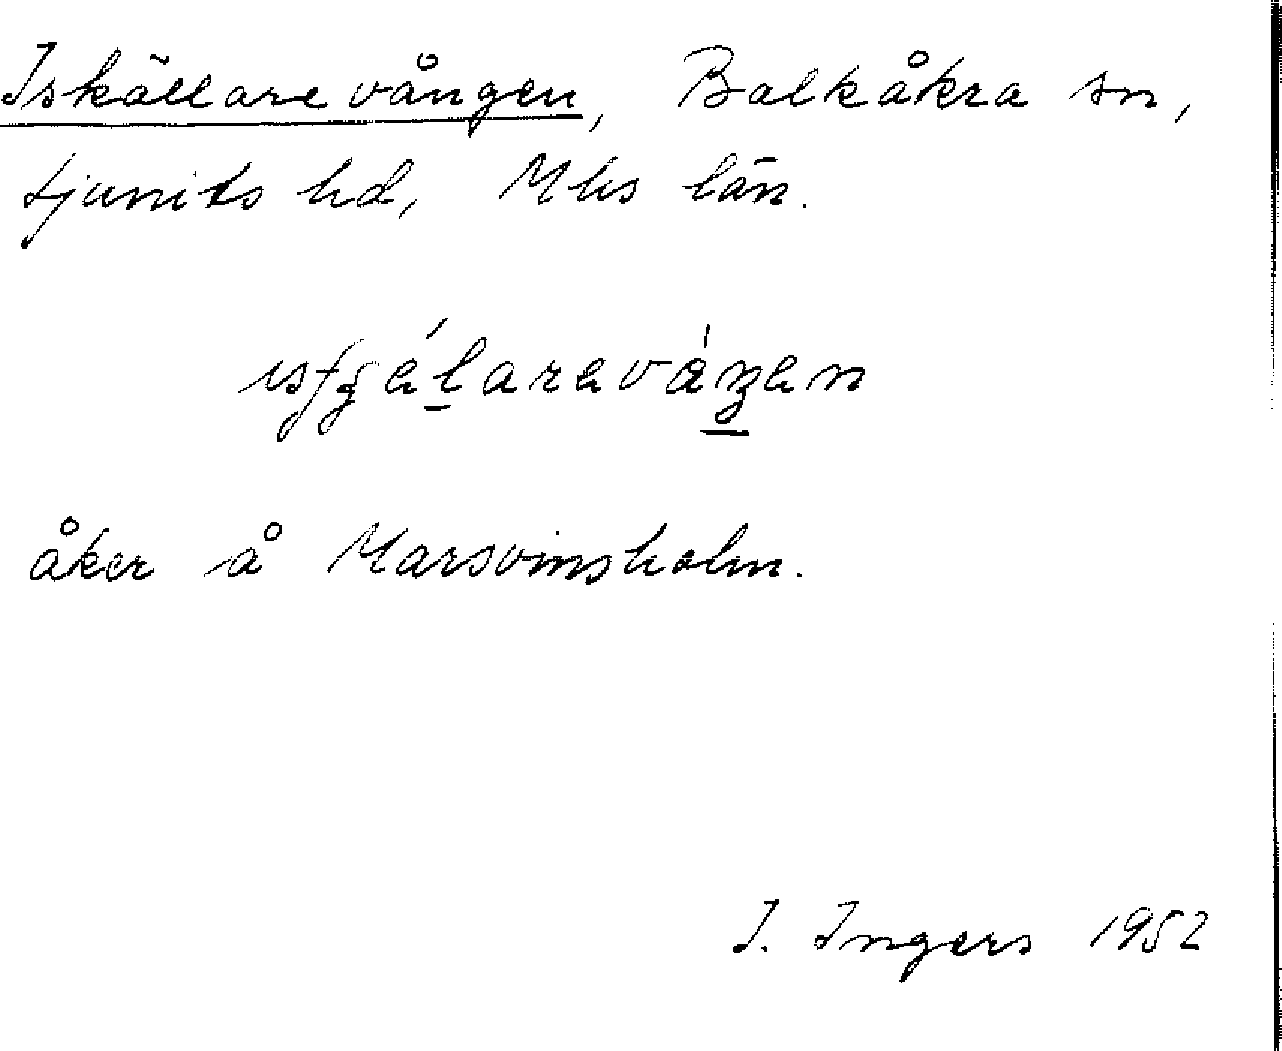 Iskällarevången, Balkåkra sn,
Ljunits hd, Mhs län.
åker å Marsvinsholm.
I. Ingers 1952